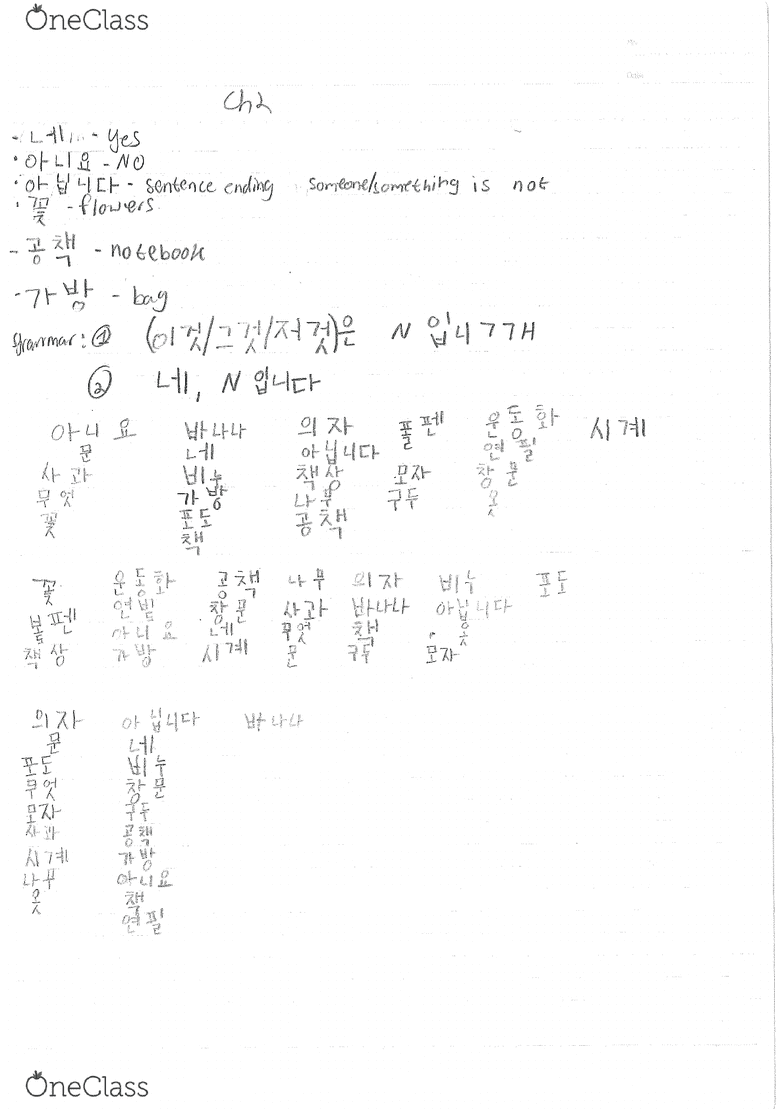 OneClass
Ch2
- 네, - Yes
· 아니요 - NO
· 아닙니다 - sentence ending someone/something is not
· 꽃 - flowers
- 공책 - notebook
· 가방 - bag
grammar: ① (이것/그것/저것)은 N 입니ㄱㄱㅐ
② 네, N 입니다
아니요 바나나 의자 폴펜 운동화 시계
문 네 아닙니다 연필
사과 비누 책상 모자 창문
무엇 가방 나무 구두 옷
꽃 포도 공책
책
꽃 운동화 공책 나무 의자 비누 포도
볼펜 연필 창문 사과 바나나 아닙니다
아니요 네 무엇 책 옷
책상 가방 시계 문 구두 모자
의자 아닙니다 바나나
문 네
포도 비누
무엇 창문
모자 구두
사과 공책
시계 가방
나무 아니요
옷 책
연필
OneClass